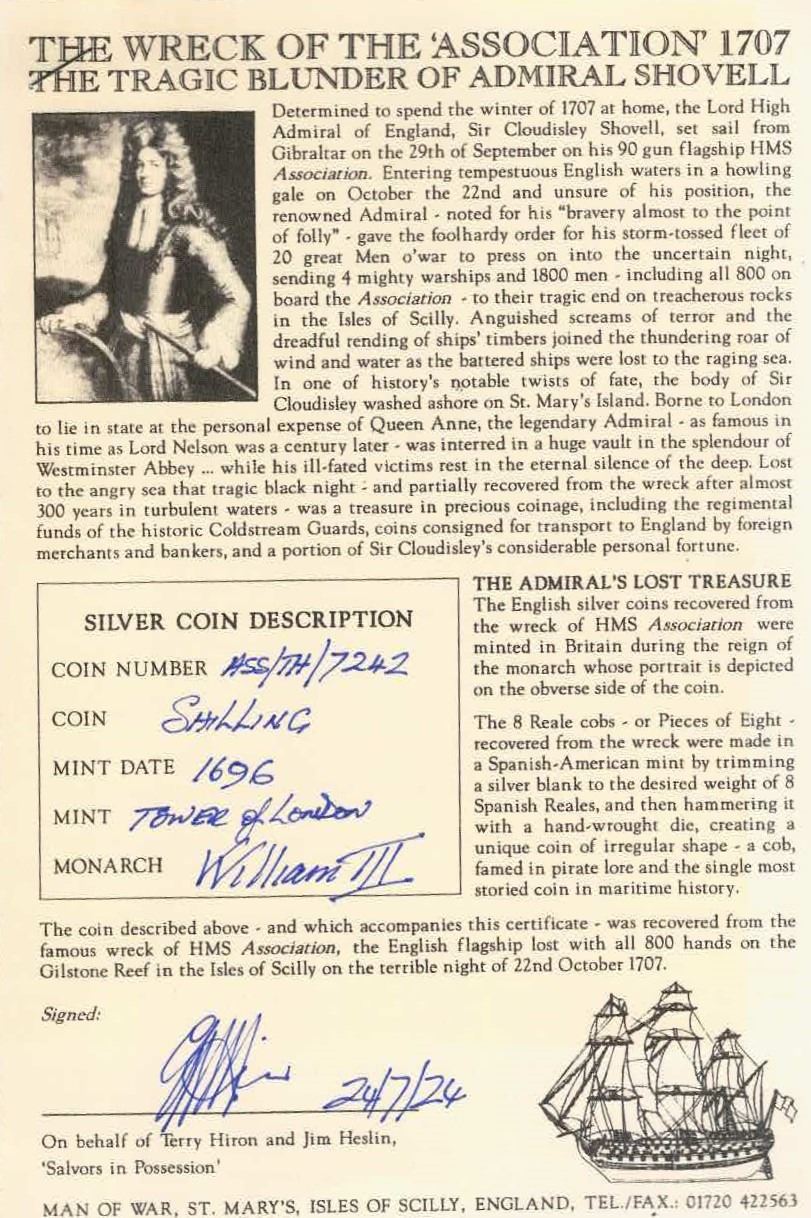 THE WRECK OF THE 'ASSOCIATION' 1707
THE TRAGIC BLUNDER OF ADMIRAL SHOVELL
Determined to spend the winter of 1707 at home, the Lord High
Admiral of England, Sir Cloudisley Shovell, set sail from
Gibraltar on the 29th of September on his 90 gun flagship HMS
Association. Entering tempestuous English waters in a howling
gale on October the 22nd and unsure of his position, the
renowned Admiral - noted for his "bravery almost to the point
of folly" - gave the foolhardy order for his storm-tossed fleet of
20 great Men o'war to press on into the uncertain night,
sending 4 mighty warships and 1800 men - including all 800 on
board the Association - to their tragic end on treacherous rocks
in the Isles of Scilly. Anguished screams of terror and the
dreadful rending of ships' timbers joined the thundering roar of
wind and water as the battered ships were lost to the raging sea.
In one of history's notable twists of fate, the body of Sir
Cloudisley washed ashore on St. Mary's Island. Borne to London
to lie in state at the personal expense of Queen Anne, the legendary Admiral - as famous in
his time as Lord Nelson was a century later - was interred in a huge vault in the splendour of
Westminster Abbey ... while his ill-fated victims rest in the eternal silence of the deep. Lost
to the angry sea that tragic black night - and partially recovered from the wreck after almost
300 years in turbulent waters - was a treasure in precious coinage, including the regimental
funds of the historic Coldstream Guards, coins consigned for transport to England by foreign
merchants and bankers, and a portion of Sir Cloudisley's considerable personal fortune.
SILVER COIN DESCRIPTION
COIN NUMBER ASS/TH/7242
COIN SHILLING
MINT DATE 1696
MINT TOWER of LONDON
MONARCH William III
THE ADMIRAL'S LOST TREASURE
The English silver coins recovered from
the wreck of HMS Association were
minted in Britain during the reign of
the monarch whose portrait is depicted
on the obverse side of the coin.
The 8 Reale cobs - or Pieces of Eight -
recovered from the wreck were made in
a Spanish-American mint by trimming
a silver blank to the desired weight of 8
Spanish Reales, and then hammering it
with a hand-wrought die, creating a
unique coin of irregular shape - a cob,
famed in pirate lore and the single most
storied coin in maritime history.
The coin described above - and which accompanies this certificate - was recovered from the
famous wreck of HMS Association, the English flagship lost with all 800 hands on the
Gilstone Reef in the Isles of Scilly on the terrible night of 22nd October 1707.
Signed:
24/7/24
On behalf of Terry Hiron and Jim Heslin,
'Salvors in Possession'
MAN OF WAR, ST. MARY'S, ISLES OF SCILLY, ENGLAND, TEL./FAX.: 01720 422563